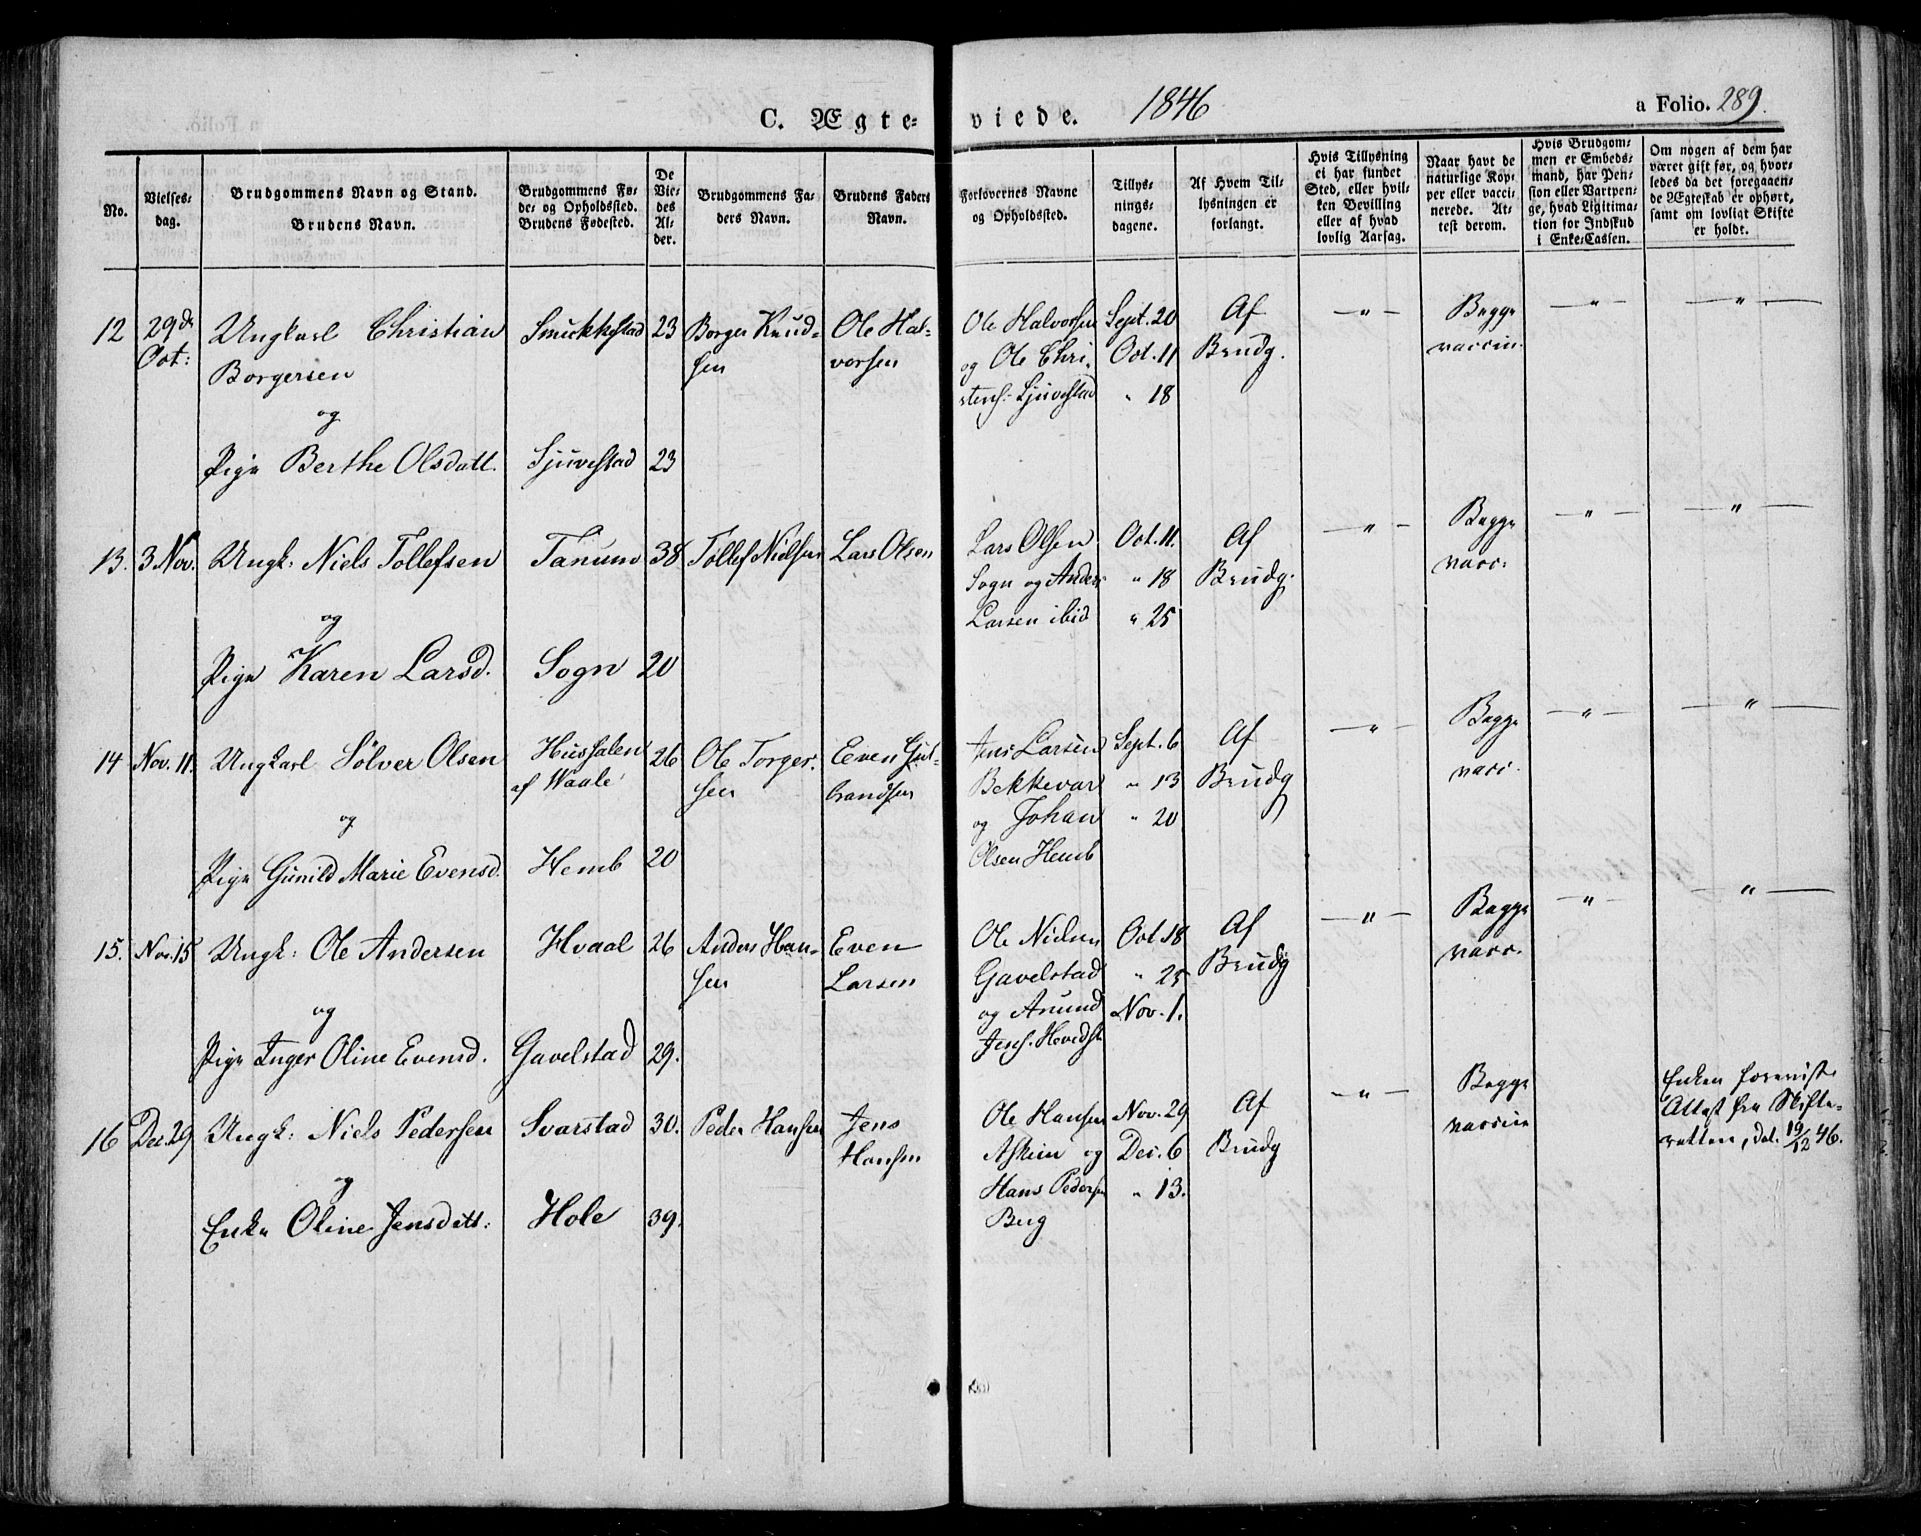 C. Ægteviede. 1846 a Folio. 289.
No.
Vielsesdag.
Brudgommens Navn og Stand.
Brudens Navn.
Brudgommens Føde- og Opholdssted.
Brudens Fødested.
De Viedes Alder.
Brudgommens Faders Navn.
Brudens Faders Navn.
Forlovernes Navne og Opholdssted.
Tillysningsdagene.
Af Hvem Tillysningen er forlangt.
Hvis Tillysning ei har fundet Sted, eller hvilken Bevilling eller af hvad lovlig Aarsag.
Naar havt de naturlige Kopper eller vaccinerede. Attest derom.
Hvis Brudgommen er Embedsmand, har Pension eller Vartpenge, hvad Legitimation for Indskud i Enke-Cassen.
Om nogen af dem har været gift før, og hvorledes da det foregaaende Ægteskab er ophørt, samt om lovligt Skifte er holdt.
12 29de Ungkarl Christian Smukkestad 23 Borger Knud- Ole Hal- Ole Halvorsen Sept. 20 Af — " — Begge — " — — " —
Oct: Borgersen sen vorsen og Ole Chri- Oct. 11 Brudg. vaccin.
og stens. Sjuvestad " 18
Pige Berthe Olsdatt. Sjuvestad 23
13. 3 Nov. Ungk: Niels Tollefsen Tanum 38 Tollef Nielsen Lars Olsen Lars Olsen Oct. 11. Af — " — Begge — " — — " —
Sogn og Anders " 18 Brudg. vacc.
og Larsen ibid " 25
Pige Karen Larsd. Sogn 20
14 Nov. 11. Ungkarl Sölver Olsen 26 Ole Torger- Even Gul- Jens Larsen Sept. 6 Af — " — Begge — " — — " —
af Waale sen brandsen Bekkevar " 13 Brudg vacc.
og og Johan " 20
Pige Gunild Marie Evensd. Hemb 20 Olsen Hemb
15. Nov. 15 Ungk: Ole Andersen Hvaal 26 Anders Han- Even Ole Nielsen Oct. 18 Af — " — Begge — " — — " —
sen Larsen Gavelstad " 25 Brudg vacc.
og og Amund Nov. 1.
Pige Inger Oline Evensd. Gavelstad 29. Jens. Hovedst
16 Dec. 29 Ungk: Niels Pedersen Svarstad 30. Peder Hansen Jens Ole Hansen Nov. 29 Af — " — Begge Enken foreviste
Hansen Askim og Dec. 6 Brudg vaccin Attest fra Skifte-
og Hans Pedersen " 13. retten, dat. 19/12 46.
Enke Oline Jensdatt: Hole 39. Berg